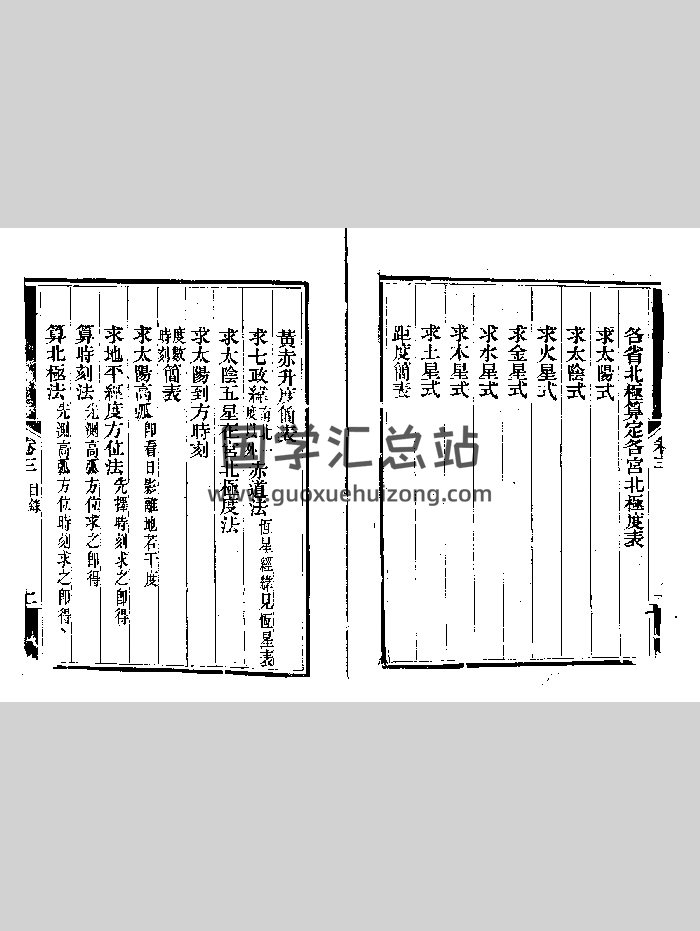 各省北極算定各宮北極度表
求太陽式
求太陰式
求火星式
求金星式
求水星式
求木星式
求土星式
距度簡表
卷三
黃赤升度簡表
求七政緯南北赤道法恆星經緯見恆星表
求太陰五星在宮北極度法
求太陽到方時刻
度數時刻簡表
求太陽高弧卽看日影離地若干度
求地平經度方位法先擇時刻求之卽得
算時刻法先測高弧方位求之卽得
算北極法先測高弧方位時刻求之卽得
卷三 目錄
国学汇总站
www.guoxuehuizong.com